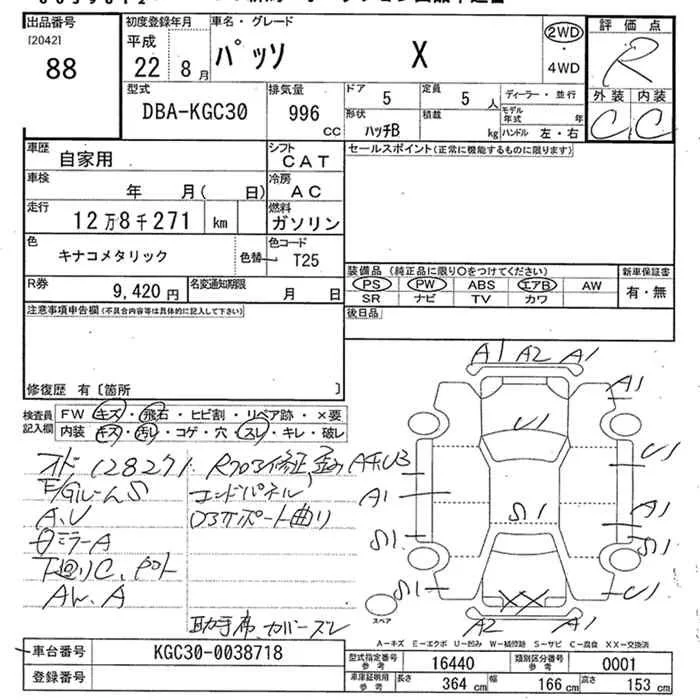 出品番号
[2042]
88
初度登録年月
平成
22年 8月
車名・グレード
パッソ X
2WD
・
4WD
評価点
R
外装 内装
C C
型式
DBA-KGC30
排気量
996
CC
ドア
5
定員
5 人
形状
ハッチB
積載
kg
ディーラー・並行
モデル年式 年
ハンドル 左・右
車歴
自家用
シフト
CAT
車検
年 月( 日)
冷房
AC
走行
12万8千271 km
燃料
ガソリン
色
キナコメタリック
色替
色コード
T25
R券
9,420 円
名変通知期限
月 日
セールスポイント(正常に機能するものに限ります)
装備品 (純正品に限り○をつけてください)
PS PW ABS エアB AW
SR ナビ TV カワ
新車保証書
有・無
後日品
注意事項申告欄(不具合内容等は具体的に記入して下さい)
修復歴 有〔箇所 〕
検査員記入欄
FW キズ・飛石・ヒビ割・リペア跡・×要
内装 キズ・汚レ・コゲ・穴・スレ・キレ・破レ
オド 128271
A、U
ミラーA
下廻りC、
AW、A
エンドパネル
サポート曲り
助手席 カバースレ
A1 A2 A1
A1
U1
U1
A1
A1
S1
S1
S1
U1
XX
A2 A1
スペア
A-キズ E-エクボ U-凹み W-補修跡 S-サビ C-腐食 XX-交換済
車台番号
KGC30-0038718
登録番号
型式指定番号 参考
16440
類別区分番号 参考
0001
車庫証明用 参考
長さ 364 cm
幅 166 cm
高さ 153 cm